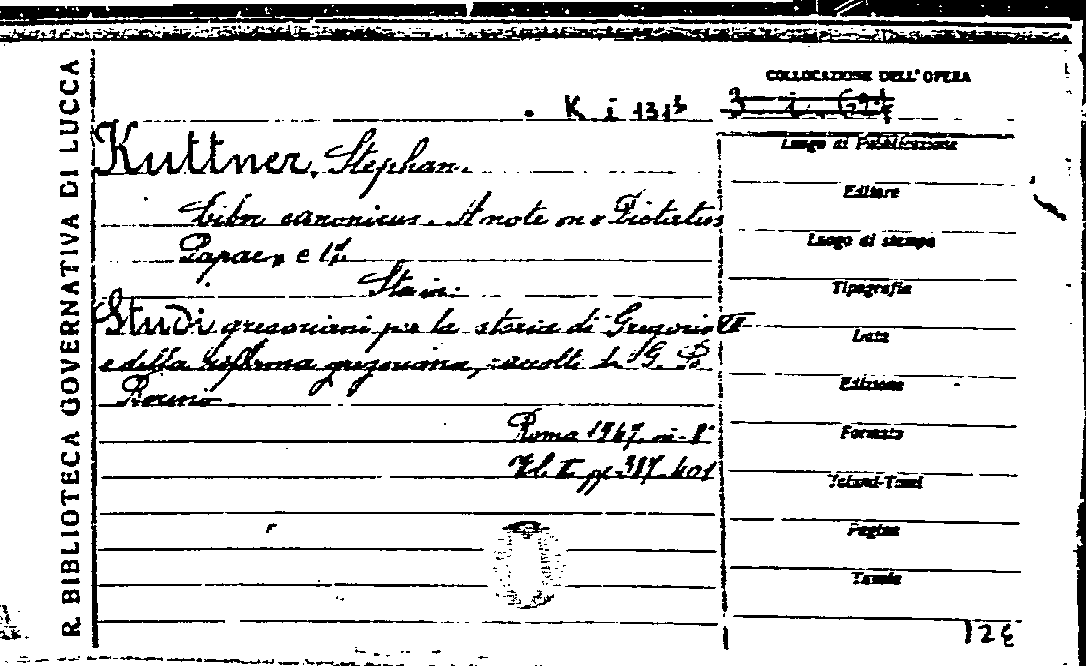 R. BIBLIOTECA GOVERNATIVA DI LUCCA
COLLOCAZIONE DELL'OPERA
K i 131
Kuttner, Stephan.
Liber canonicus. A note on Dictatus
Papae, c 17
Sta in:
Studi gregoriani per la storia di Gregorio VII
e della riforma gregoriana, raccolti da G. B.
Borino
Roma 1947. in-8°
Vol. II pp. 387-401
Luogo di Pubblicazione
Editore
Luogo di stampa
Tipografia
Data
Edizione
Formato
Volumi-Tomi
Pagine
Tavole